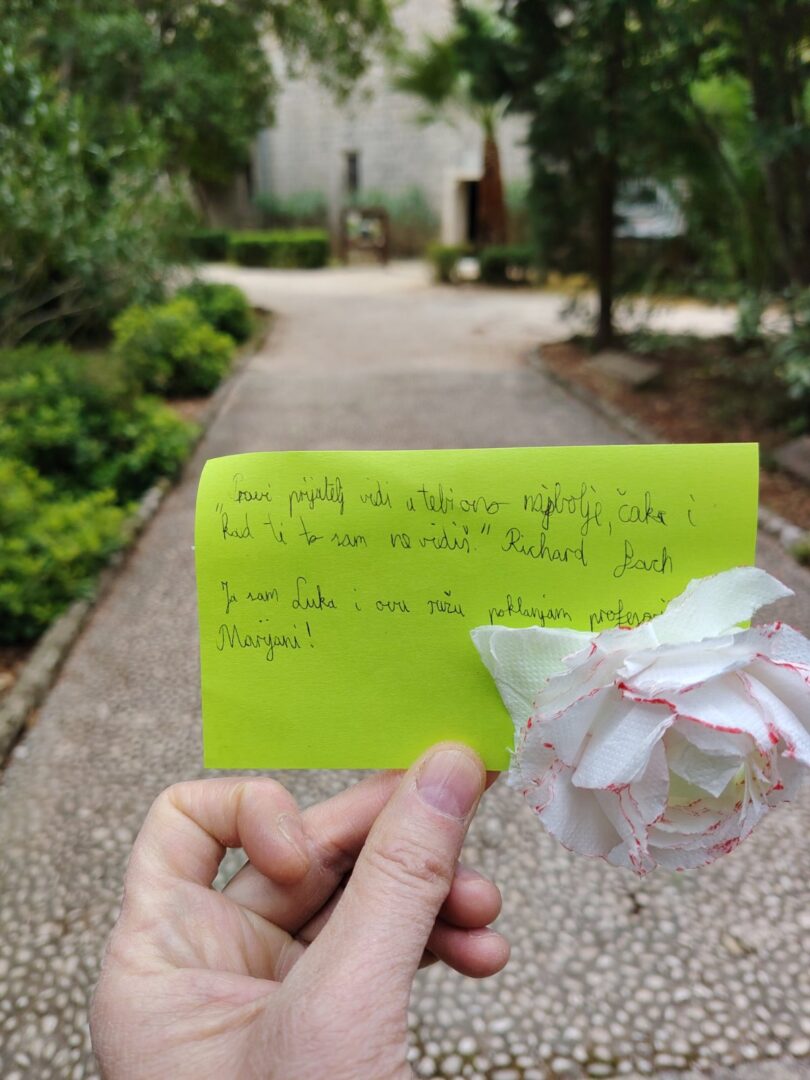 "Pravi prijatelj vidi u tebi ono najbolje, čak i
kad ti to sam ne vidiš." Richard Bach
Ja sam Luka i ovu ružu poklanjam
Marijani!